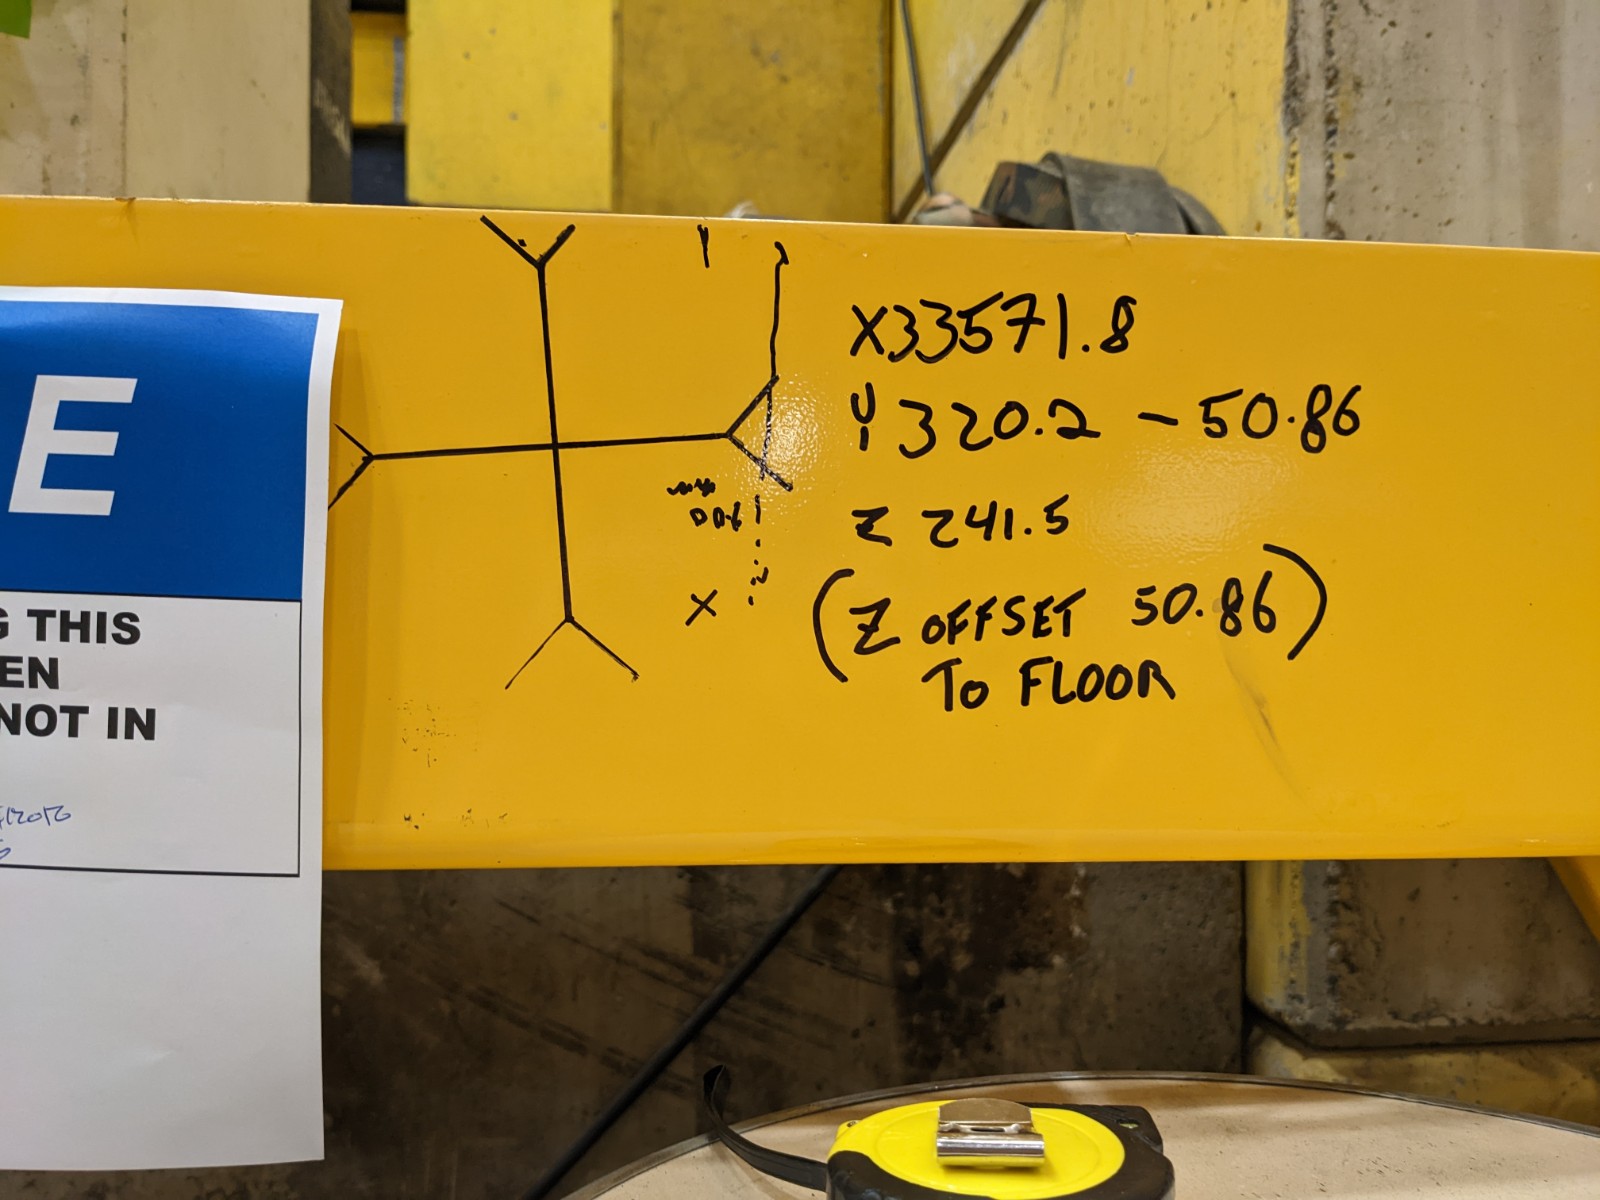 E
G THIS
EN
NOT IN
X33571.8
Y 320.2 - 50.86
Z 241.5
(Z OFFSET 50.86)
TO FLOOR
X